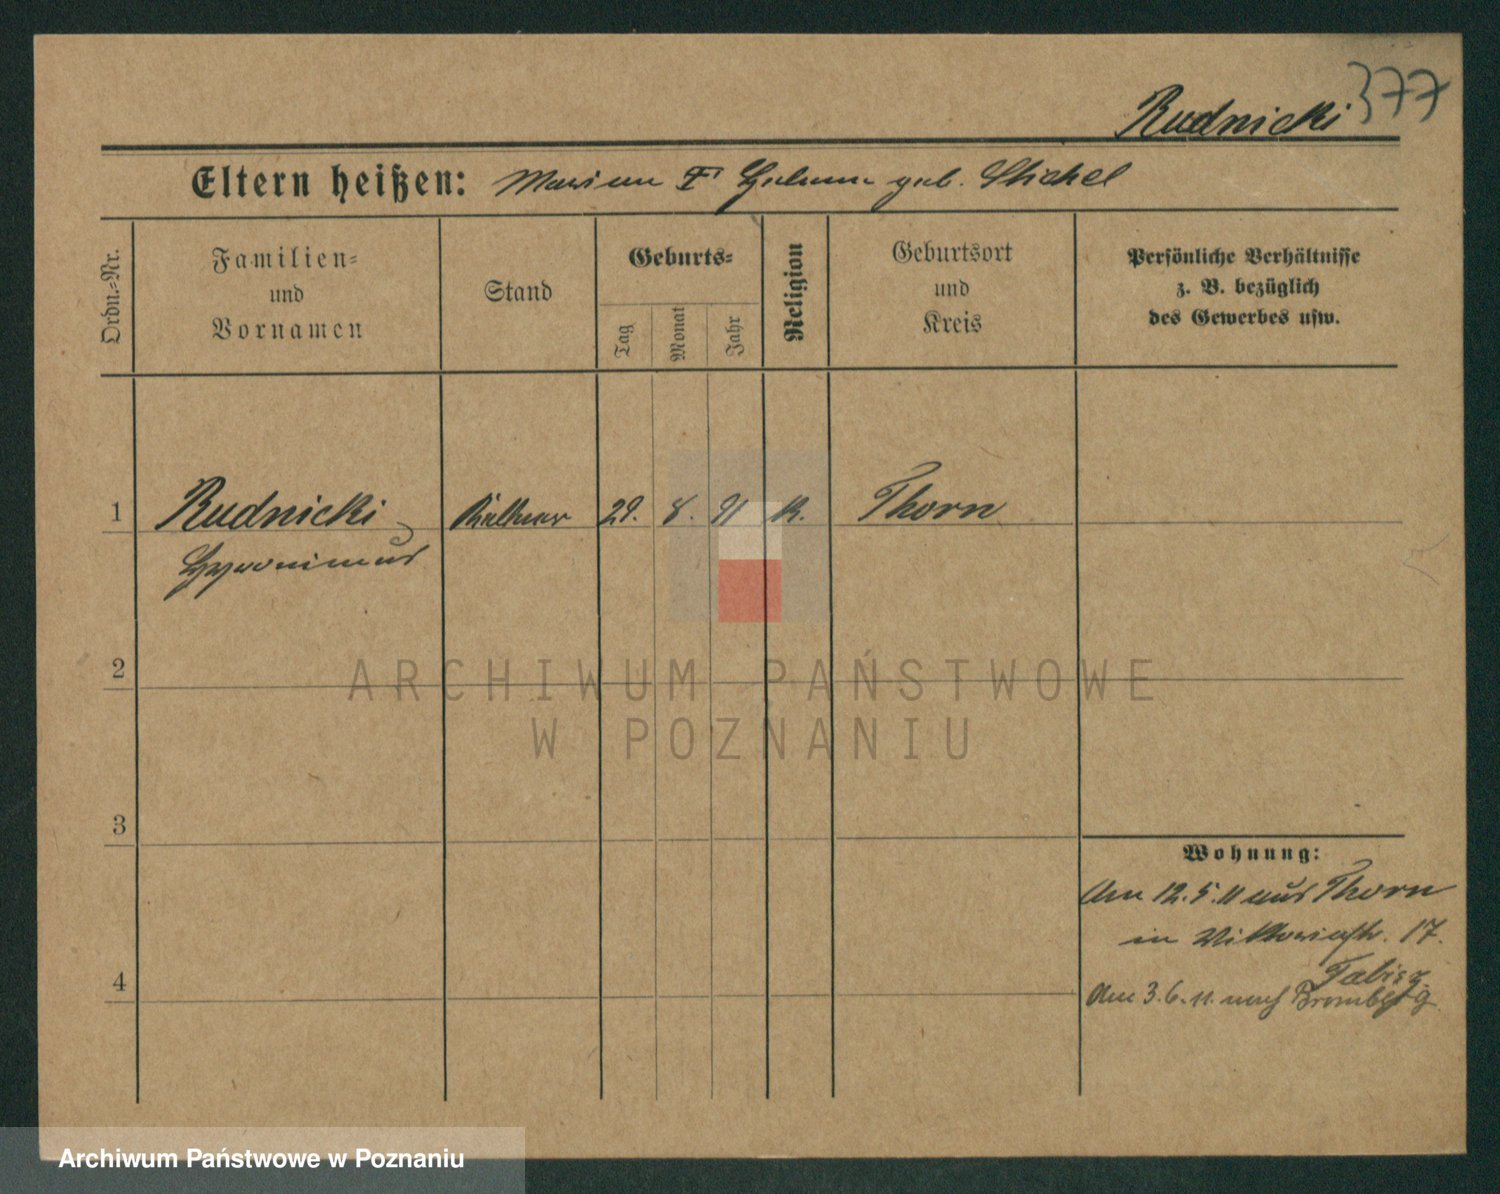 377
Rudnicki
Eltern heißen: Marian geb.
Ordn.-Nr.
Familien-
und
Vornamen
Stand
Geburts-
Tag
Monat
Jahr
Religion
Geburtsort
und
Kreis
Persönliche Verhältnisse
z. B. bezüglich
des Gewerbes usw.
1 Rudnicki 29. 8. 91 K. Thorn
Hyronimus
2
ARCHIWUM PAŃSTWOWE
W POZNANIU
3
Wohnung:
Am 12.5.11 aus Thorn
in Viktoriastr. 17.
4
Am 3.6.11. nach Bromberg
Archiwum Państwowe w Poznaniu